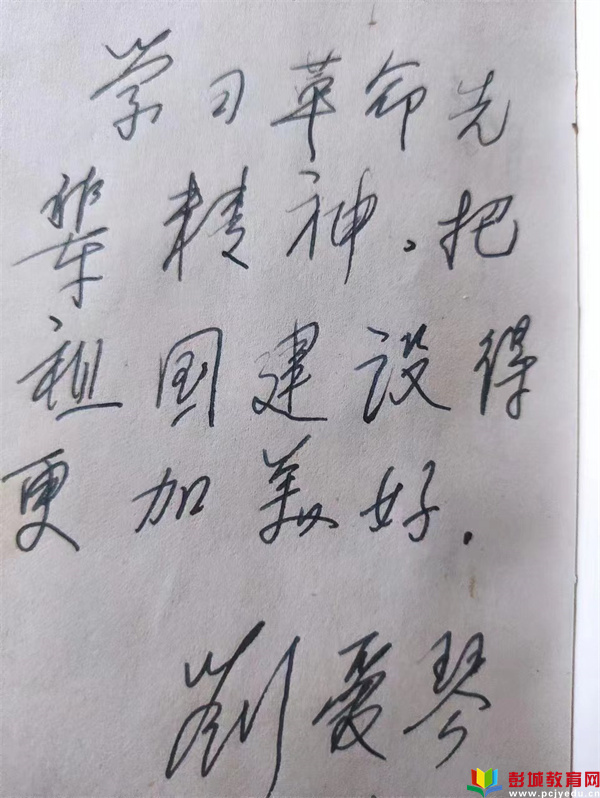 学习革命先
辈精神，把
祖国建设得
更加美好．
刘爱琴
彭城教育网
www.pcjyedu.cn